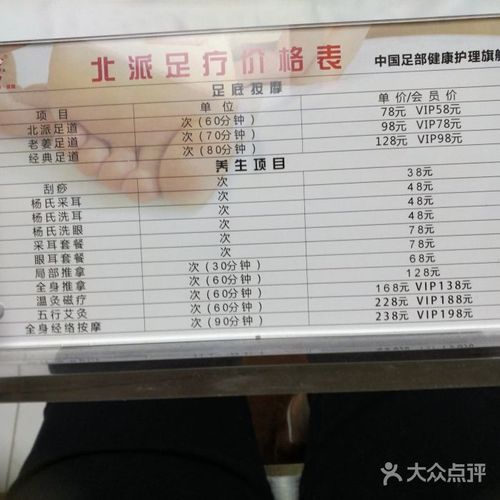 北派足疗价格表 中国足部健康护理旗舰
足底按摩
项目 单位 单价/会员价
北派足道 次(60分钟) 78元 VIP58元
老姜足道 次(70分钟) 98元 VIP78元
经典足道 次(80分钟) 128元 VIP98元
养生项目
刮痧 次 38元
杨氏采耳 次 48元
杨氏洗耳 次 48元
杨氏洗眼 次 48元
采耳套餐 次 78元
眼耳套餐 次 78元
局部推拿 次(30分钟) 68元
全身推拿 次(60分钟) 128元
温灸磁疗 次(60分钟) 168元 VIP138元
五行艾灸 次(60分钟) 228元 VIP188元
全身经络按摩 次(90分钟) 238元 VIP198元
大众点评